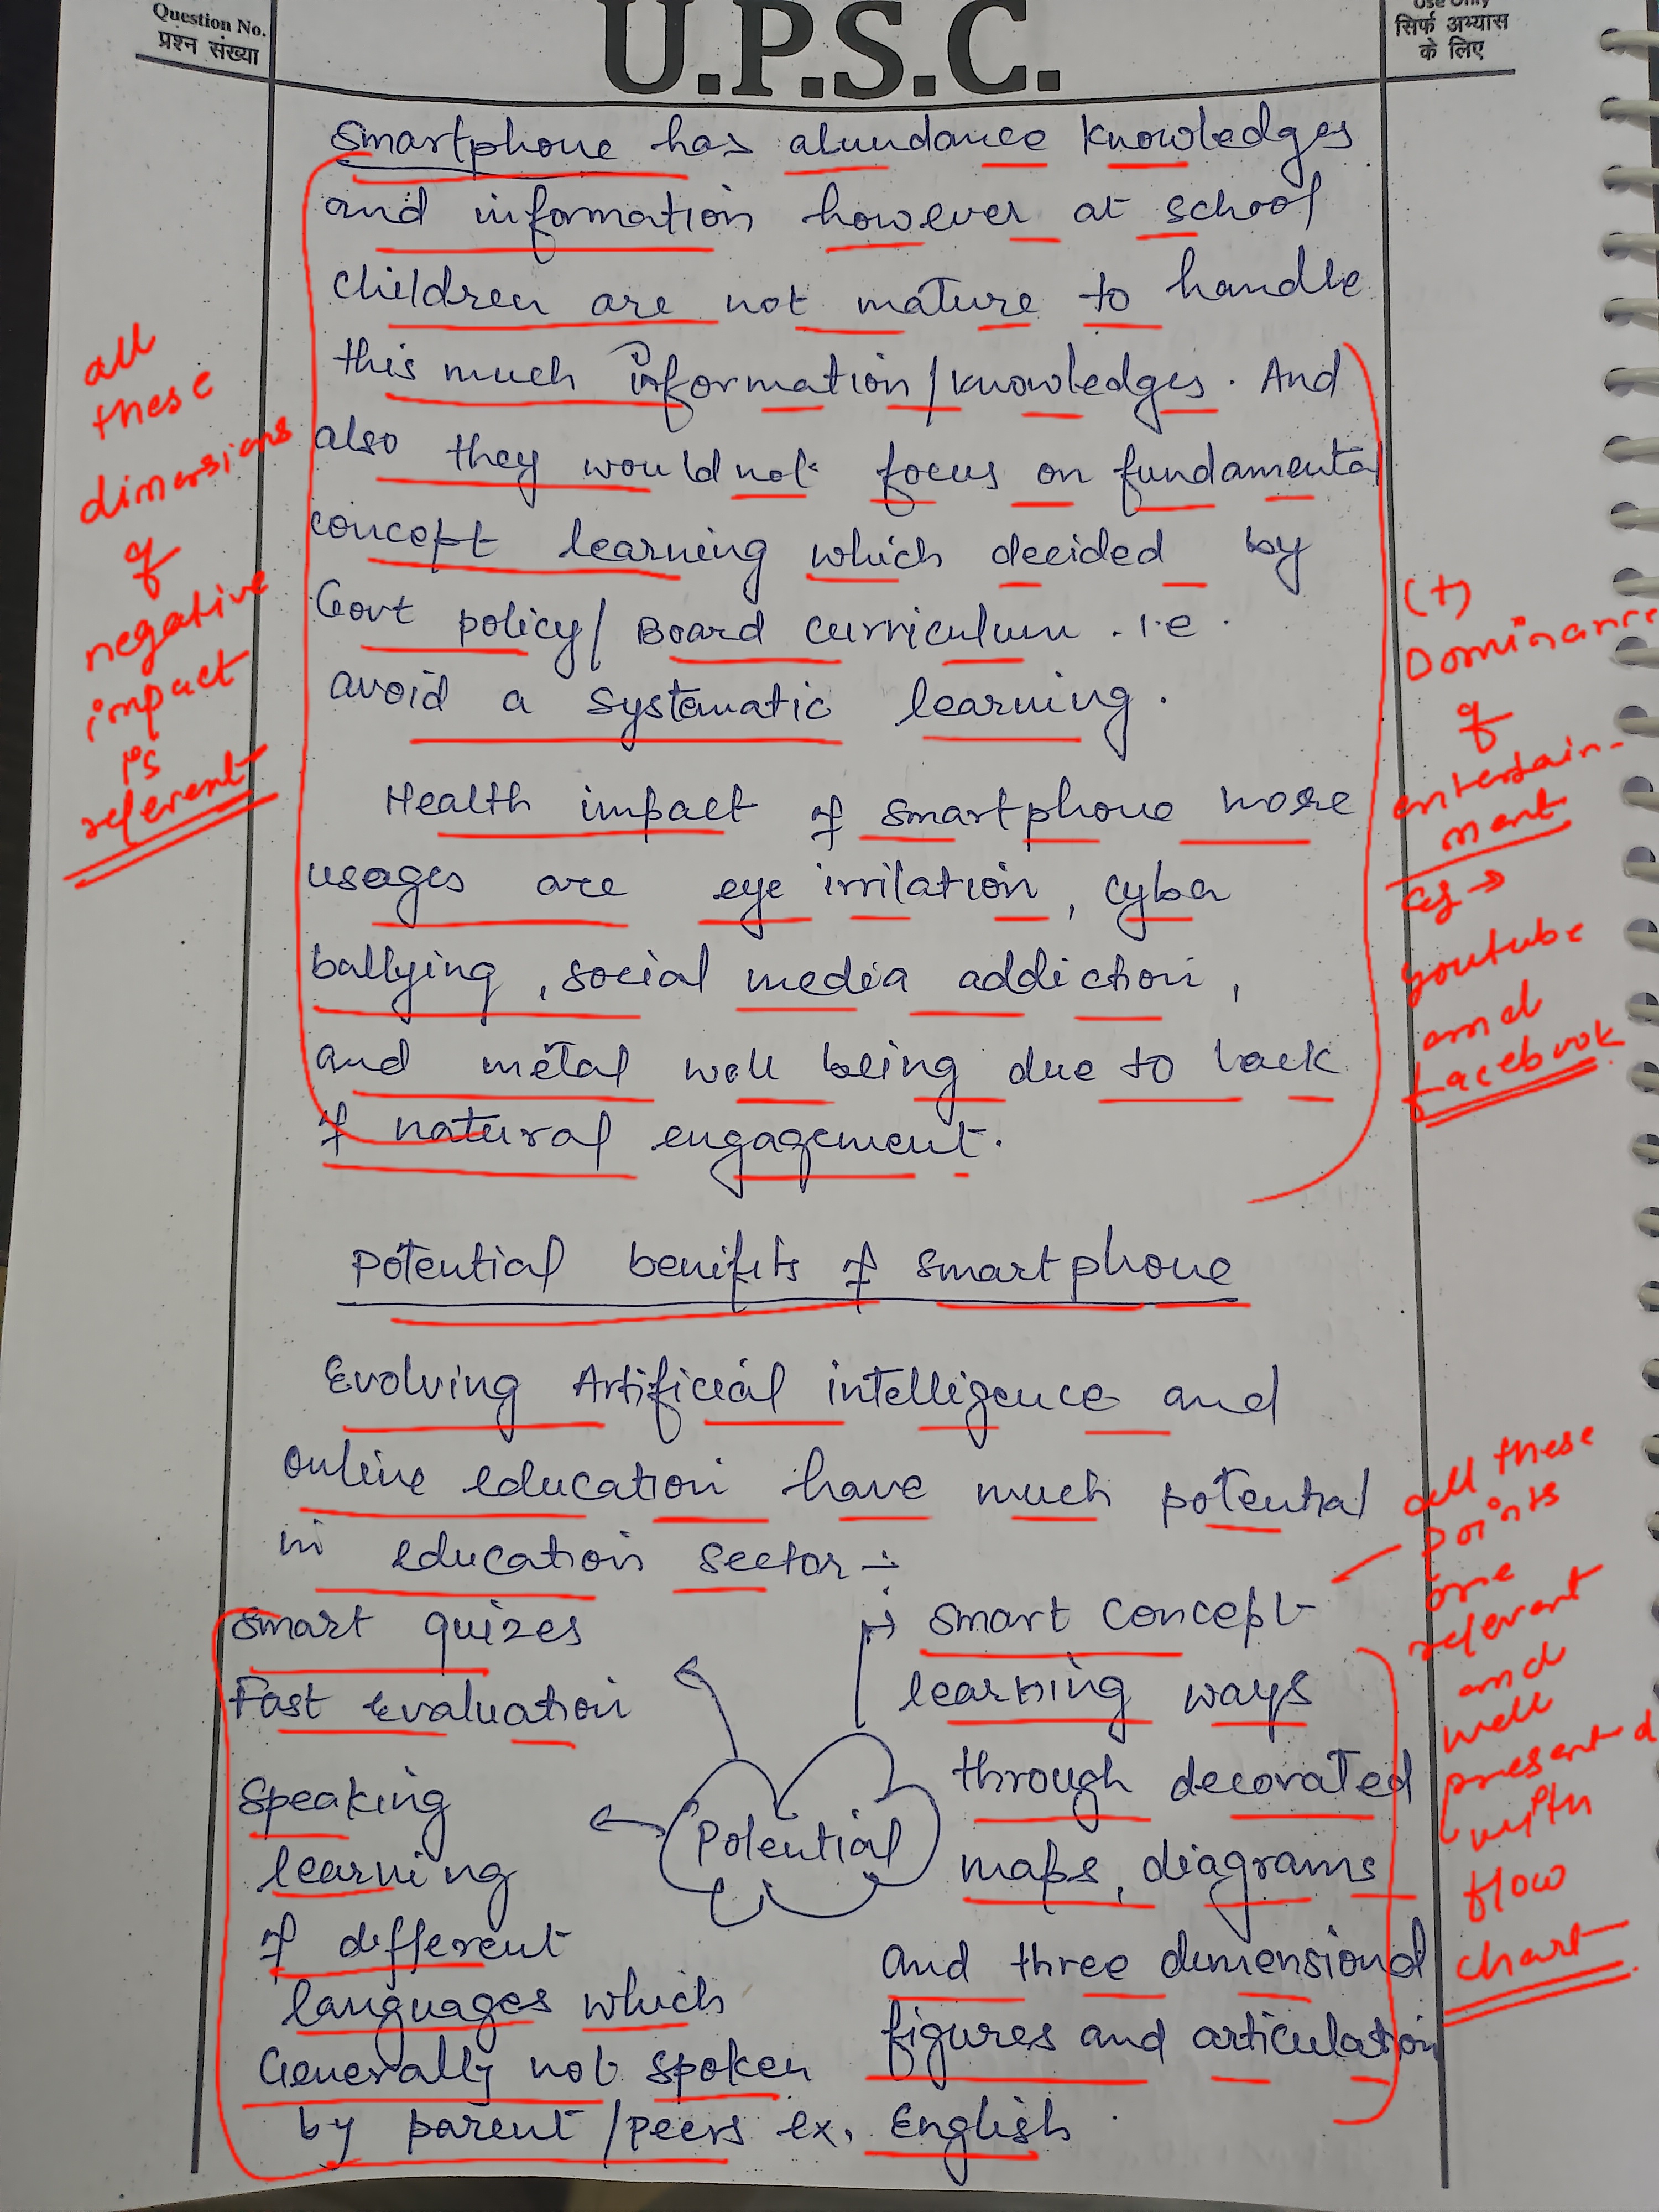 Question No.
प्रश्न संख्या
U.P.S.C.
Use Only
सिर्फ अभ्यास
के लिए
Smartphone has abundance knowledges
and information however at school
children are not mature to handle
this much information/knowledges. And
also they would not focus on fundamental
concept learning which decided by
Govt policy/Board curriculum. i.e.
avoid a systematic learning.
Health impact of smartphone more
usages are eye irritation, cyber
ballying, social media addiction,
and metal well being due to lack
of natural engagement.
all
these
dimensions
of
negative
impact
is
relevant
(+)
Dominance
of
entertain-
ment
eg →
youtube
and
facebook
Potential benifits of smartphone
Evolving Artificial intelligence and
online education have much potential
in education sector :-
Smart quizes
Fast evaluation
Speaking
learning
of different
languages which
Generally not spoken
by parent/peers ex. English
Potential
→ Smart concept
learning ways
through decorated
maps, diagrams
and three dimensional
figures and articulation
all these
points
are
relevant
and
well
presented
with
flow
chart